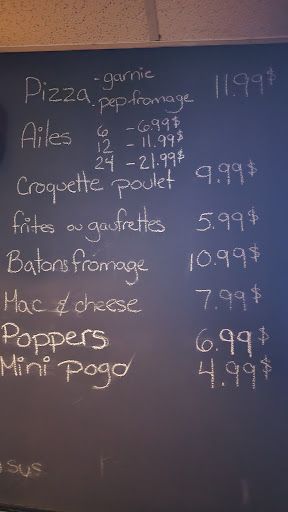 Pizza - garnie 11.99$
- pepfromage
Ailes 6 - 6.99$
12 - 11.99$
24 - 21.99$
Croquette poulet 9.99$
frites ou gaufrettes 5.99$
Batons fromage 10.99$
Mac & cheese 7.99$
Poppers 6.99$
Mini pogo 4.99$
sus